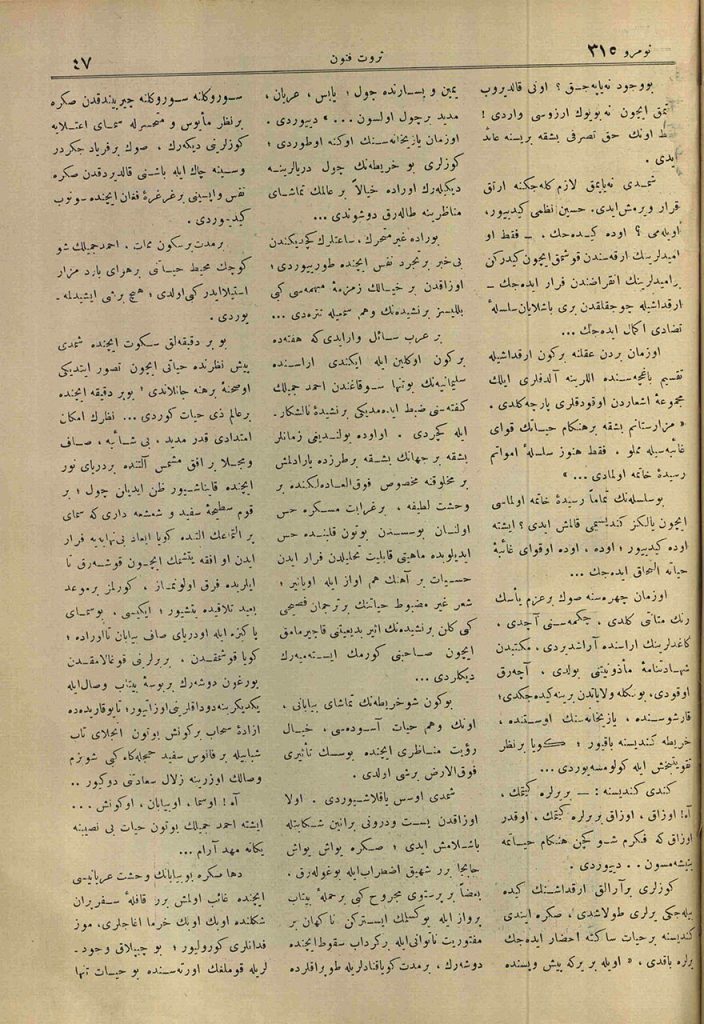 نومرو ٣١٥
ثروت فنون
٤٧
بووجود نه‌یاپه‌جق؟ اونی قالدیروب
آتمق ایچون نه‌بویوك آرزوسی واردی!
اونك حق تصرفی بشقه بریسنه عائد
ایدی.
شمدی نه‌یاپمق لازم كله‌جكنه آرتق
قرار ویرمش ایدی. حسین نظمی كیدییور،
اویله‌می؟ اوده كیده‌جك. ــ فقط او
امیدلرینك آرقه‌سندن قوشمق ایچون كیدركن
بو امیدلرینك انقراضندن فرار ایده‌جك ــ
آرقداشیله چوجقلقدن بری باشلایان سلسلهٔ
تضادی اكمال ایده‌جك...
اوزمان بردن عقلنه بركون آرقداشیله
تقسیم باغچه‌سنده اللرینه آلدقلری ایلك
مجموعهٔ اشعاردن اوقودقلری پارچه‌ كلدی.
« مزارستانم بشقه برهنكام حیاتك قوای
غائبه‌سیله مملو. فقط هنوز سلسلهٔ امواتم
رسیدهٔ خاتمه اولمادی... »
بوسلسله‌نك تماماً رسیدهٔ خاتمه اولماسی
ایچون یالكز كندیسیمی قالمش ایدی؟ ایشته
اوده كیدییور؛ اوده، اوده اوقوای غائبهٔ
حیاته التحاق ایده‌جك...
اوزمان چهره‌سنه صوك برعزم یأسك
رنك متانتی كلدی. چكمه‌سنی آچدی.
كاغدلرینك آراسنده آراشدیردی. مكتبدن
شهادتنامهٔ مأذونیتنی بولدی، آچه‌رق
اوقودی، بونكله ولایاتدن برینه كیده‌جكدی؛
قارشوسنده، یازیخانه‌سنك اوستنده،
خریطه كندیسنه باقیور؛ كویا برنظر
تقویتبخش ایله كولومسه‌یوردی...
كندی كندیسنه: ــ بریرلره كیتمك،
آه! اوزاق، اوزاق بریرلره كیتمك، اوقدر
اوزاق كه فكرم شو كچن هنكام حیاتمه
یتیشه‌مسون.. دییوردی.
كوزلری برآرالق آرقداشنك كیده
بیله‌جكی یرلری طولاشدی. صكره ایندی
كندیسنه برحیات ساكنه احضار ایده‌جك
یرلره باقدی، « اویله بر یركه پیش وپسنده
یمین و یسارنده چول؛ یابس، عریان،
مدید برچول اولسون... » دییوردی.
اوزمان یازیخانه‌سنك اوكنه اوطوردی؛
كوزلری بو خریطه‌نك چول دریالرینه
دیكیله‌رك اوراده خیالاً برعالمك تماشای
مناظرینه طاله‌رق دوشوندی...
بوراده غیر متحرك، ساعتلرك كچدیكندن
بی‌خبر برتجرد نفس ایچنده طورییوردی؛
اوزاقدن بر خیالك زمزمهٔ مبهمه‌سی كبی
بللیسز برنشیده‌نك وهم سمعیله تتره‌دی...
بر عرب سائل وارایدی كه هفته‌ده
بركون اوكلین ایله ایكندی آراسنده
سلیمانیه‌نك بوتنها سوقاغندن احمد جمیلك
كفته‌سنی ضبط ایده‌مدیكی برنشیدهٔ نالشكار
ایله كچردی. اواوده بولندیغی زمانلر
بشقه برجهانك بشقه برطرزده یارادلمش
بر مخلوقنه مخصوص فوق‌العاده‌لكنده بر
وحشت لطیفه، برغرابت مسكره حس
اولنان بوسسدن بوتون قلبنده حس
ایدیلوبده ماهیتی قابلیت تحلیلدن فرار ایدن
حسیات برآهنك هم آواز ایله اویانیر؛
شعر غیر مضبوط حیاتنك برترجمان فصیحی
كبی كلن برنشیده‌نك اثیر بدیعیتنی قاچیرمامق
ایچون صاحبنی كورمك ایسته‌میه‌رك
دیكلردی...
بوكون شوخریطه‌نك تماشای بیابانی،
اونك وهم حیات آسوده‌سی، خیال
رؤیت مناظری ایچنده بوسسك تأثیری
فوق‌الارض برشی اولدی.
شمدی اوسس یاقلاشییوردی. اولا
اوزاقدن پست ودرونی برانین شكایتله
باشلامش ایدی؛ صكره یواش یواش
جابجا برر شهیق اضطراب‌ایله بوغوله‌رق.
بعضاً بر پرستوی مجروح كبی برحملهٔ بیتاب
پرواز ایله یوكسلمك ایستركن ناكهان بر
مفتوریت ناتوانی‌ایله برگرداب سقوط‌ایچنده
دوشه‌رك، برمدت كویاقنادلریله طوپراقلرده
سوروكلنه سوروكلنه چیرپیندقدن صكره
برنظر مأیوس و متحسرله سمای اعتلایه
كوزلرینی دیكه‌رك، صوك برفریاد جكردر
وسینه چاك ایله باشنی قالدیردقدن صكره
نفس واپسینی برغرغرهٔ فغان ایچنده سونوب
كیدییوردی.
برمدت برسكون ممات. احمد جمیلك شو
كوچك محیط حیاتنی برهوای بارد مزار
استیلا ایدر كبی اولدی؛ هیچ برشی ایشیدلمه‌
یوردی.
بو بر دقیقه‌لق سكوت ایچنده شمدی
پیش نظرنده حیاتی ایچون تصور ایتدیكی
اوصحنهٔ برهنه جانلاندی؛ بوبر دقیقه ایچنده
برعالم ذی حیات كوردی... نظرك امكان
امتدادی قدر مدید، بی شائبه، صاف
ومجلا بر افق مشمس آلتنده بردریای نور
ایچنده قاینایشیور ظن ایدیلن چول؛ بر
قوم سطیحهٔ سفید و شعشعه‌داری كه سمای
پر التماعك آلتنده كویا ابعاد بی‌نهایه‌یه فرار
ایدن او افقه یتشمك ایچون قوشه‌رق تا
ایلریده فرق اولونماز، كورلمز برموعد
بعید تلاقیده یتشیور؛ ایكیسی، بوسمای
پاكیزه ایله اودریای صاف بیابان تااوراده؛
كویا قوشمقدن، بربرلرنی قوغالامقدن
یورغون دوشه‌رك بربوسهٔ بیتاب وصال‌ایله
یكدیكرینه دوداقلرینی اوزاتیور؛ تایوقاریده‌ده
آزادهٔ سحاب بركونش بوتون انجلای تاب
شبابیله برفانوس سفید حجله‌كاه كبی شوبزم
وصالك اوزرینه زلال سعادتنی دوكیور..
آه! اوسما، اوبیابان، اوكونش...
ایشته احمد جمیلك بوتون حیات بی نصیبنه
یكانه مهد آرام...
دها صكره بوبیابانك وحشت عریانیسی
ایچنده غائب اولمش برر قافلهٔ سفربران
شكلنده اوبك اوبك خرما آغاجلری، موز
فدانلری كورولیور؛ بو چیپلاق وجود-
لریله قوملغك اورته‌سنده بو حیات تنها